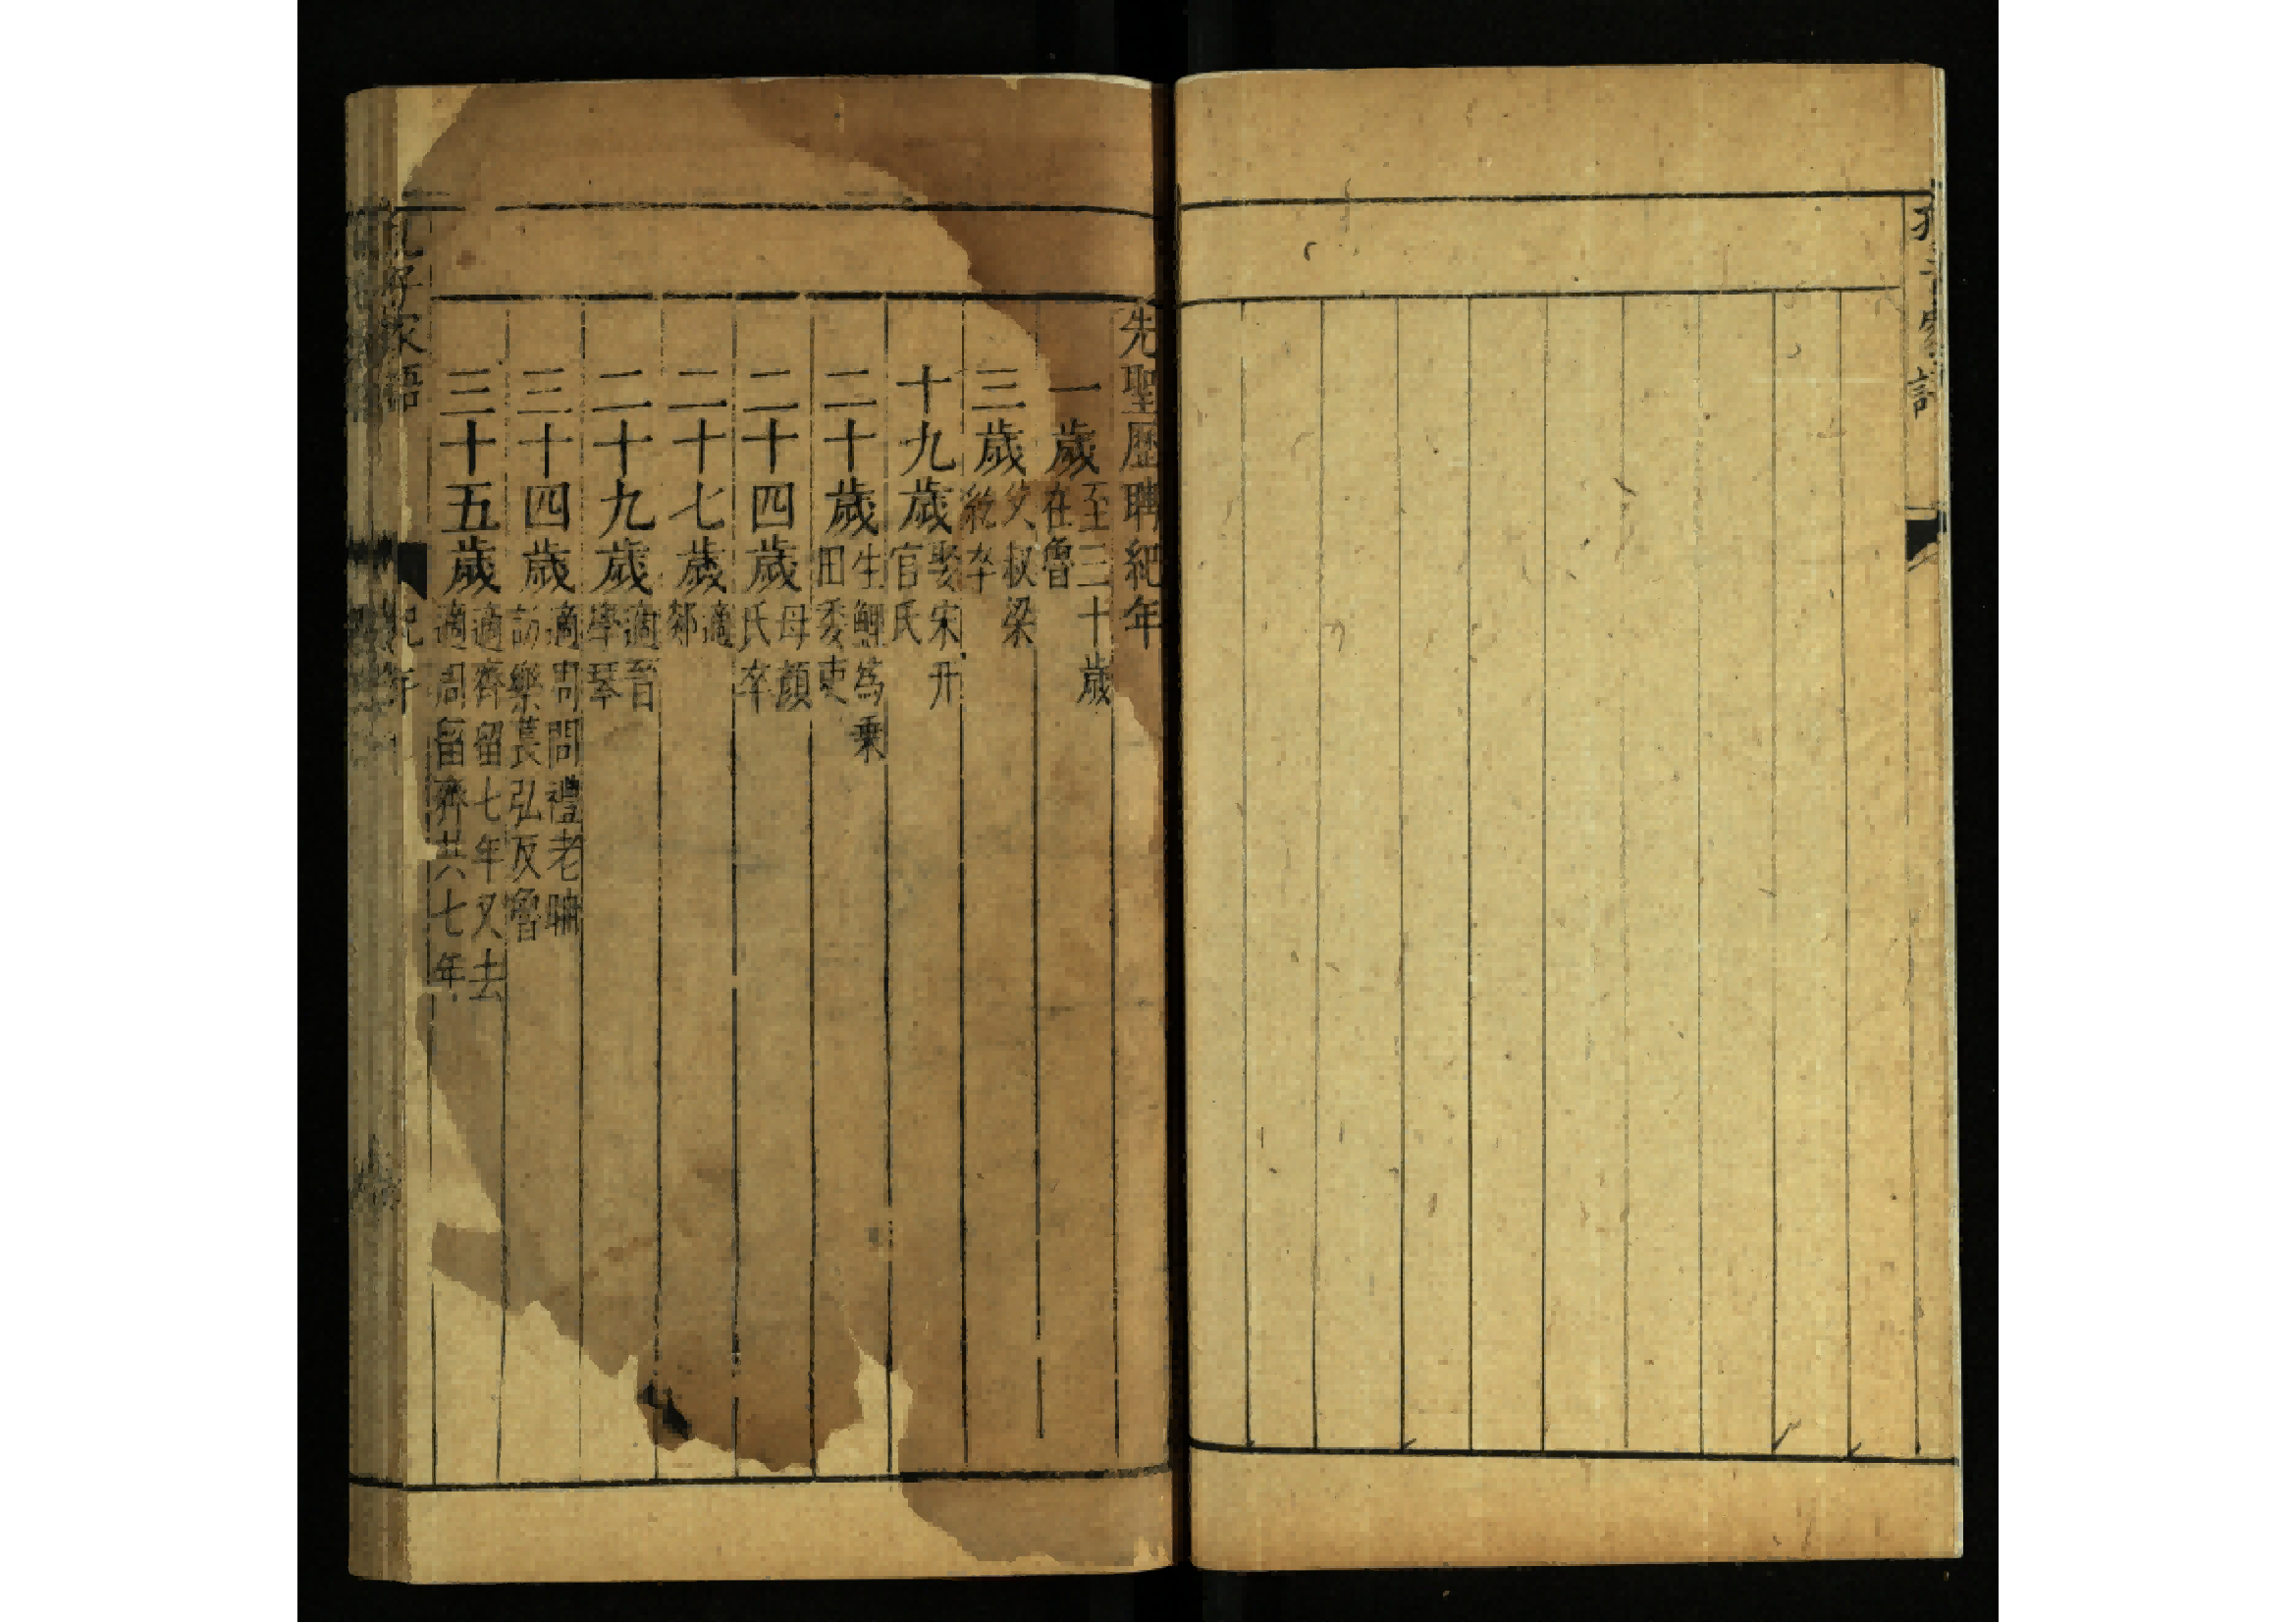 孔子家語
先聖歷聘紀年
一歲 至三十歲
在魯
三歲 父叔梁
紇卒
十九歲 娶宋幵
官氏
二十歲 生鯉為乗
田委吏
二十四歲 母顏
氏卒
二十七歲 適
郯
二十九歲 適晉
學琴
三十四歲 適周問禮老聃
訪樂萇弘反魯
三十五歲 適齊留七年又去
適周留齊共六七年
孔子家語
紀年